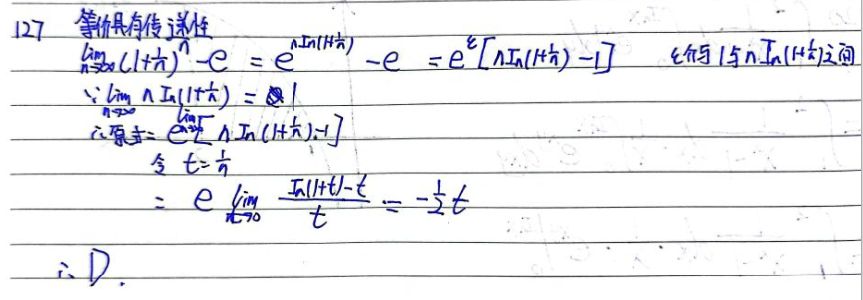 127 等价具有传递性
lim n→∞ (1+1/n)^n - e = e^{n ln(1+1/n)} - e = e^ξ [n ln(1+1/n) - 1] ξ介与 1与 n ln(1+1/n)之间
∵ lim n→∞ n ln(1+1/n) = 1
∴原式= e lim n→∞ [n ln(1+1/n) - 1]
令 t = 1/n
= e lim t→0 (ln(1+t) - t)/t = -1/2 t
∴ D.